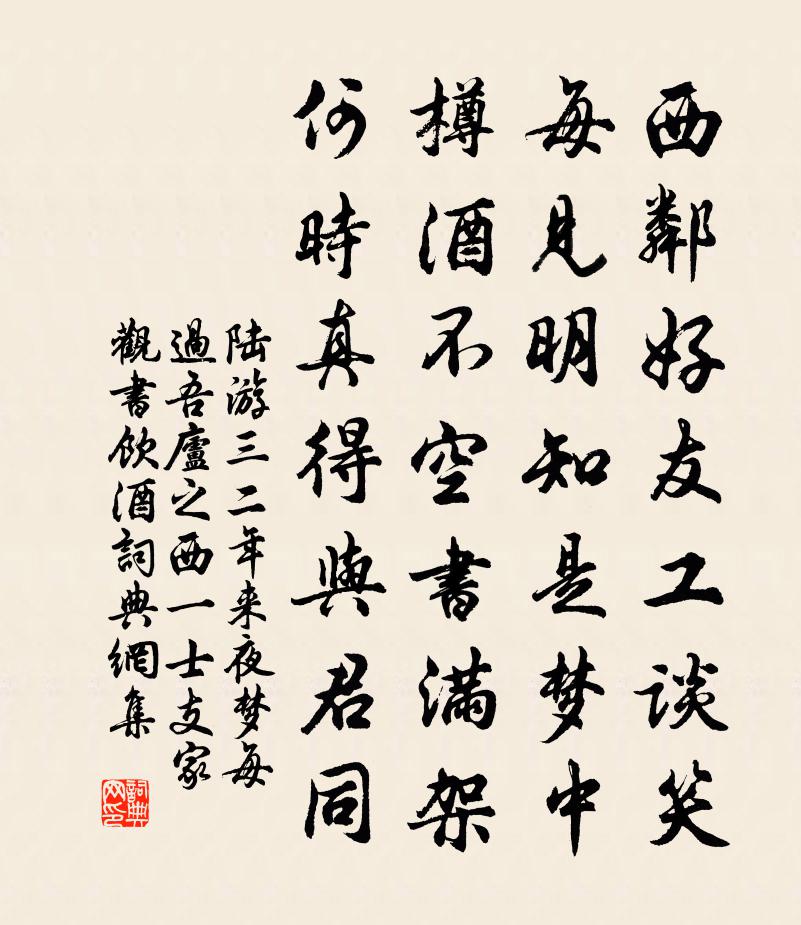 西鄰好友工談笑
每見明知是梦中
樽酒不空書満架
何時真得與君同
陆游三二年来夜梦每
過吾廬之西一士友家
觀書飲酒詞典網集
詞典网印